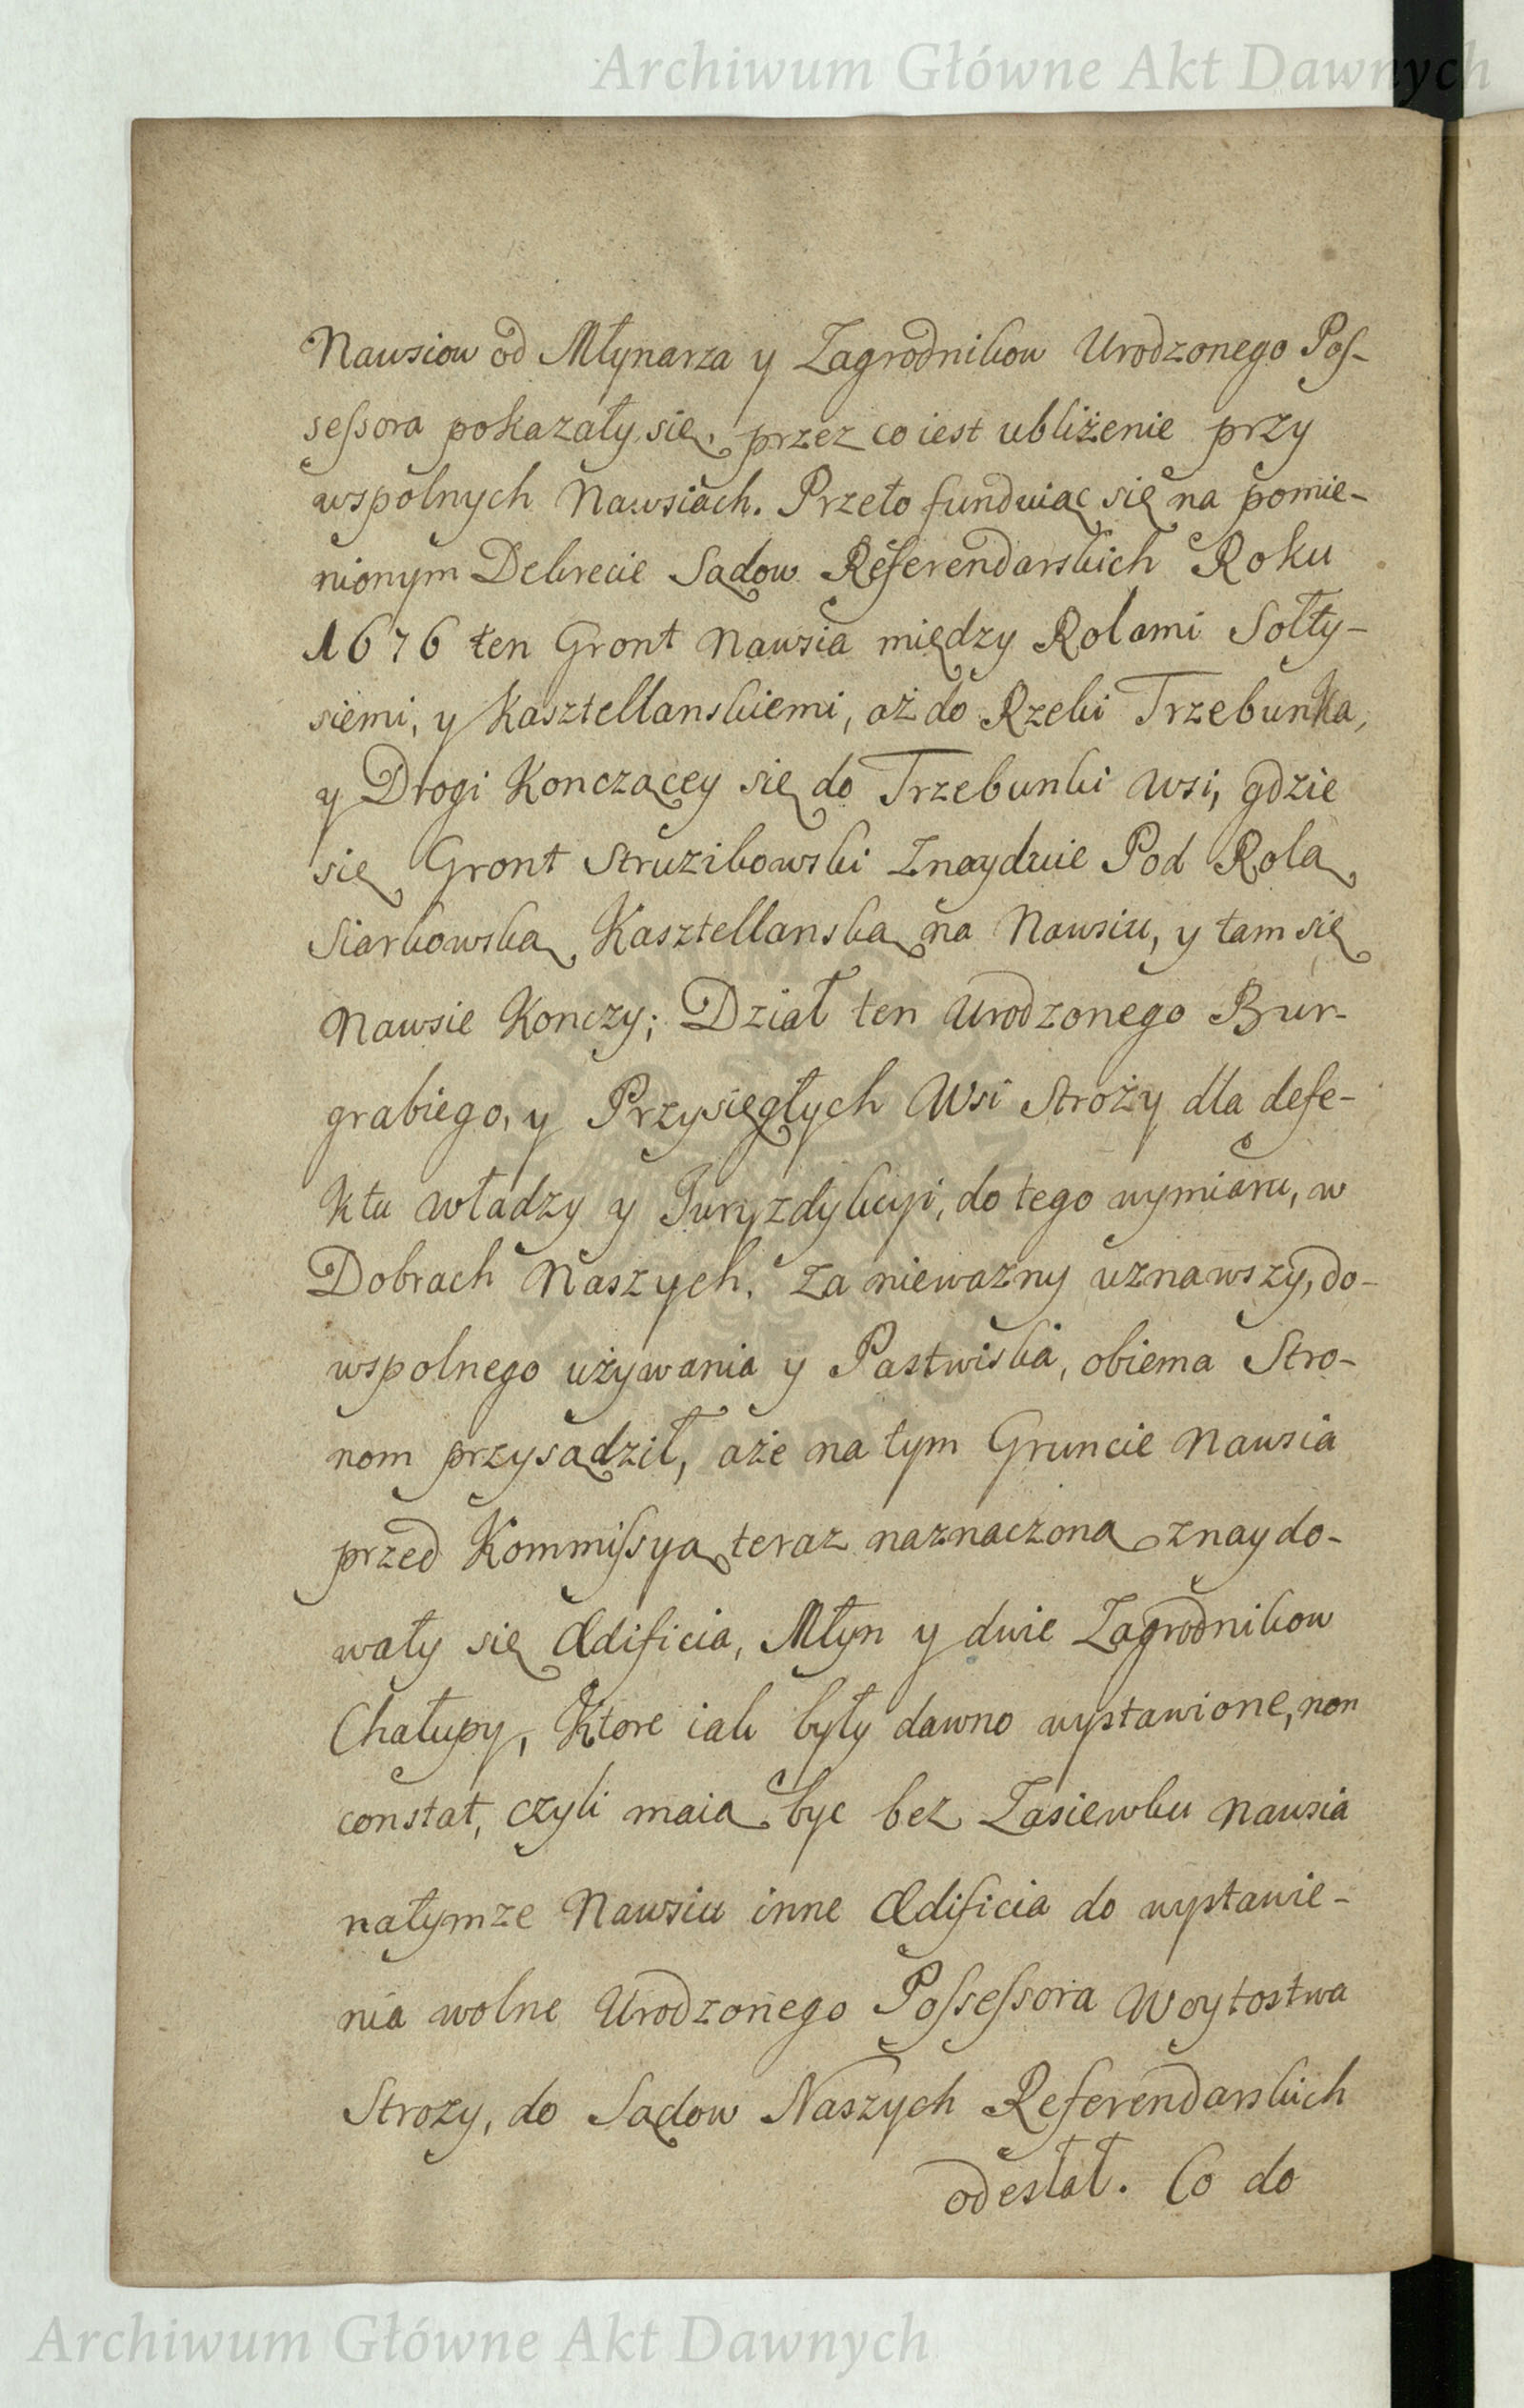 Archiwum Główne Akt Dawnych
Nawsiow od Młynarza y Zagrodnikow Urodzonego Pos-
sessora pokazały się, przez co iest ubliżenie przy
wspolnych Nawsiach. Przeto funduiąc się na pomie-
nionym Dekrecie Sądow Referendarskich Roku
1676 ten Gront Nawsia między Rolami Sołty-
siemi, y Kasztellanskiemi, aż do Rzeki Trzebunka,
y Drogi Konczącey się do Trzebunki wsi, gdzie
się Gront Struzikowski Znayduie Pod Rolą
Siarkowską Kasztellanską na Nawsiu, y tam się
Nawsie Konczy; Dział ten Urodzonego Bur-
grabiego, y Przysięgłych Wsi Stroży dla defe-
ktu władzy y Juryzdykcyi, do tego wymiaru, w
Dobrach Naszych. Za niewazny uznawszy, do-
wspolnego używania y Pastwiska, obiema Stro-
nom przysądził, aże na tym Gruncie Nawsia
przed Kommissyą teraz naznaczoną znaydo-
wały się Ædificia, Młyn y dwie Zagrodnikow
Chałupy, Ktore iak były dawno wystawione, non
constat, czyli maią byc bez Zasiewku nawsia
natymze Nawsiu inne Ædificia do wystawie-
nia wolne Urodzonego Possessora Woytostwa
Strozy, do Sądow Naszych Referendarskich
odesłał. Co do
Archiwum Główne Akt Dawnych